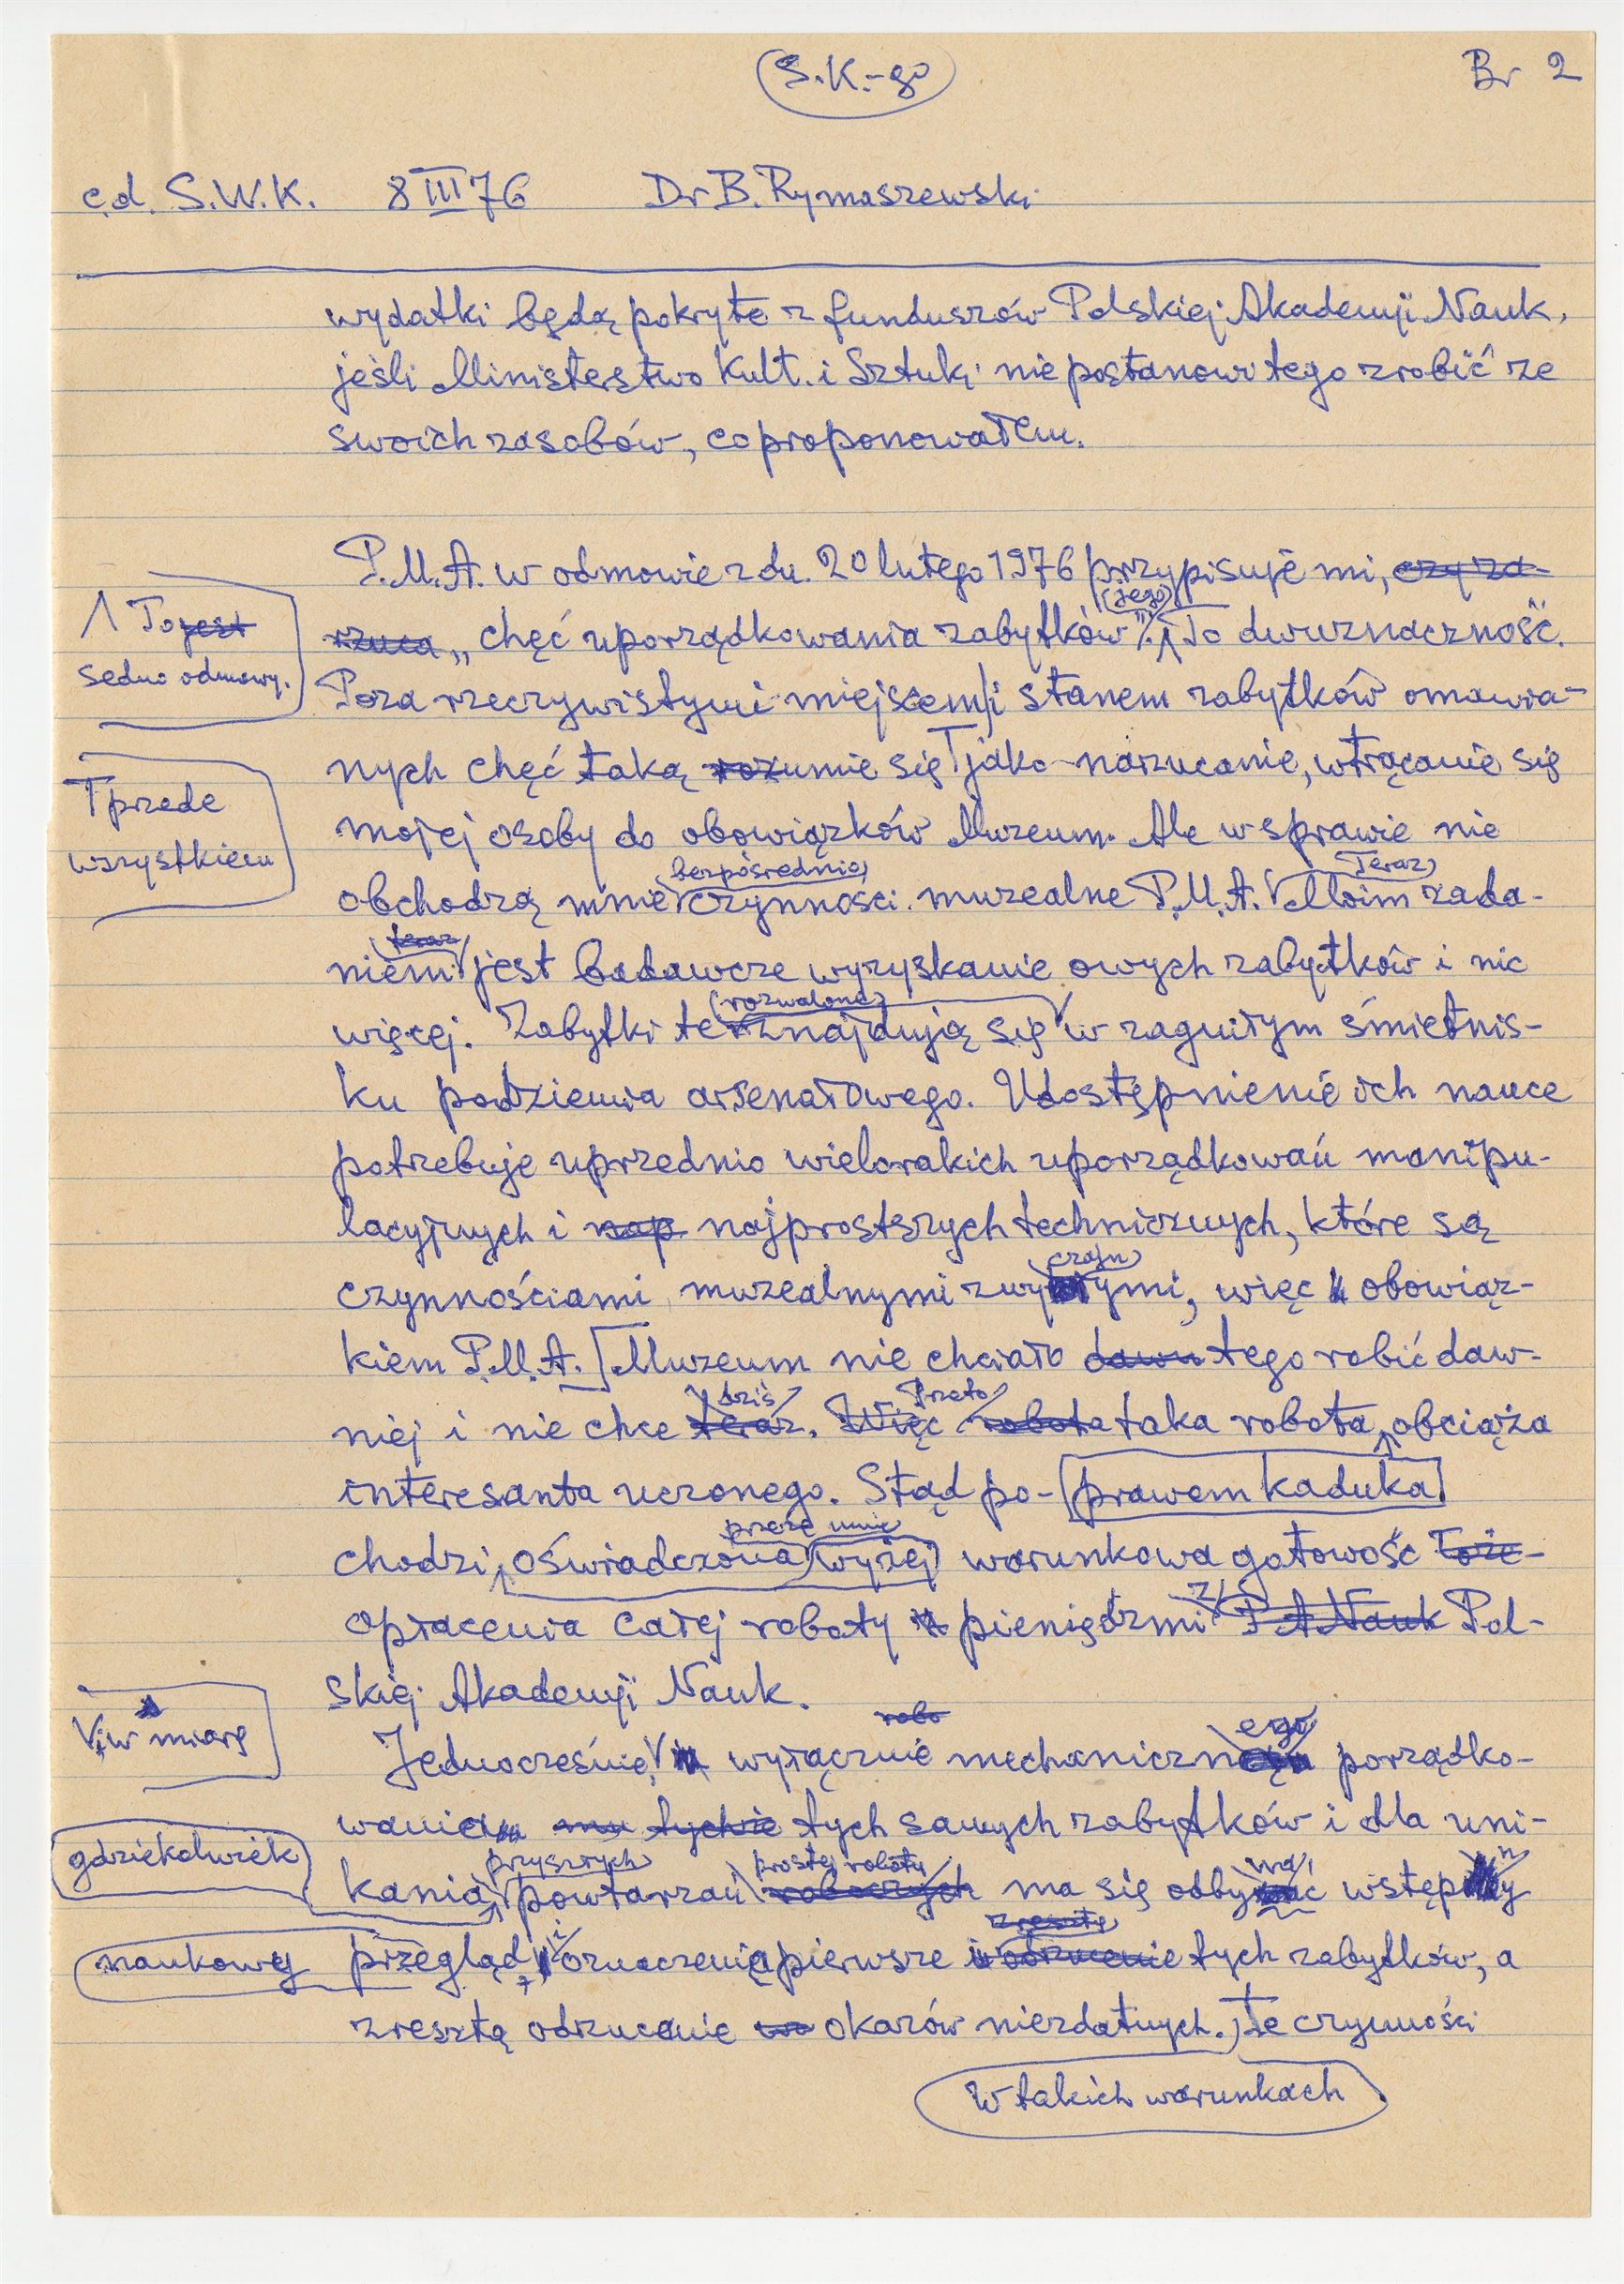 (S.K.-go
Br 2
c.d. S.W.K. 8 III 76 Dr B. Rymaszewski
wydatki będą pokryte z funduszów Polskiej Akademji Nauk,
jeśli Ministerstwo Kult. i Sztuki nie postanowi tego zrobić ze
swoich zasobów, co proponowałem.
P.M.A. w odmowie z dn. 20 lutego 1976 przypisuje mi, czy za-
(jego)
rzuca „chęć uporządkowania zabytków". To dwuznaczność.
To jest
sedno odmowy.
Poza rzeczywistymi miejscem i stanem zabytków omawia-
nych chęć taką rozumie się jako narzucanie, wtrącanie się
przede
wszystkiem
mojej osoby do obowiązków Muzeum. Ale w sprawie nie
bezpośrednio Teraz
obchodzą mnie czynności muzealne P.M.A. Moim zada-
teraz
niem jest badawcze wyzyskanie owych zabytków i nic
(rozwalone)
więcej. Zabytki te znajdują się w zagniłym śmietnis-
ku podziemia arsenałowego. Udostępnienie ich nauce
potrzebuje uprzednio wielorakich uporządkowań manipu-
lacyjnych i nap najprostszych technicznych, które są
czajn
czynnościami muzealnymi zwyymi, więc obowiąz-
kiem P.M.A. Muzeum nie chciało dawn tego robić daw-
dziś Przeto
niej i nie chce teraz. Więc robota taka robota obciąża
interesanta uczonego. Stąd po- prawem kaduka
przeze mnie
chodzi, oświadczona wyżej warunkowa gotowość łoże-
z
opłacenia całej roboty pieniędzmi P.A. Nauk Pol-
skiej Akademji Nauk.
robo
ego
i w miarę
Jednocześnie wyłącznie mechaniczn porządko-
wania tychże tych samych zabytków i dla uni-
gdziekolwiek
przyszłych prostej roboty wa n
kania powtarzań roboczych ma się odbyć wstępy
zresztą
naukowy przegląd, i oznaczenia pierwsze i odrzucenie tych zabytków, a
zresztą odrzucenie okazów niezdatnych. Te czynności
W takich warunkach